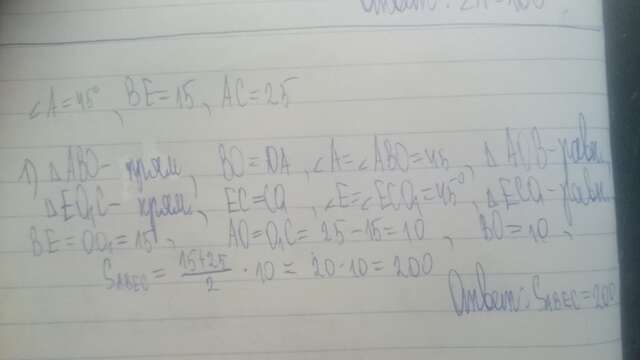 Ответ: 2π-100
∠A=45°, BE=15, AC=25
1) △ABO- прям, BO=OA, ∠A=∠ABO=45, △AOB-равн.
△EO₁C- прям, EC=CO, ∠E=∠ECO₁=45°, △ECO-равн.
BE=OO₁=15, AO=O₁C=25-15=10, BO=10,
S_ABEC=(15+25)/2 · 10 = 20·10=200
Ответ: S_ABEC=200